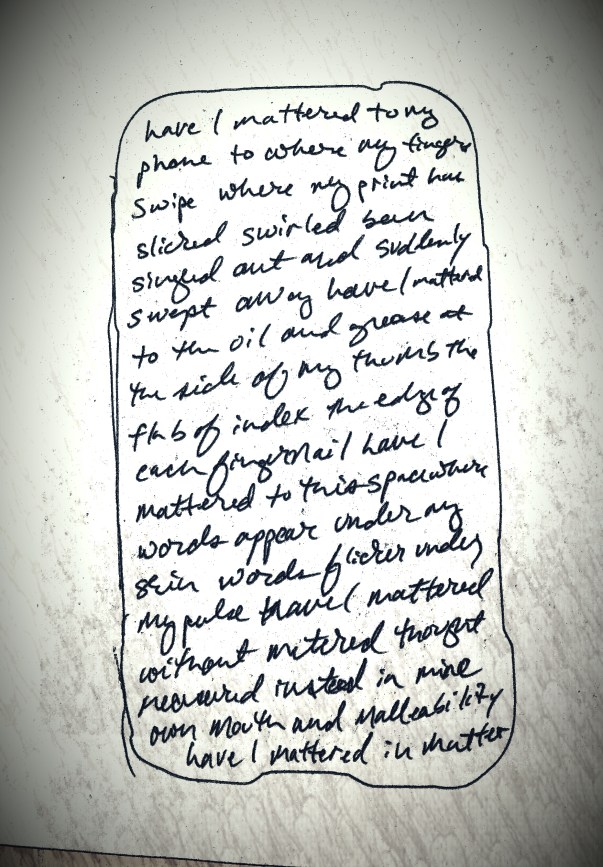 have I mattered to my
phone to where my fingers
swipe where my print has
slicked swirled been
singed out and suddenly
swept away have I mattered
to the oil and grease at
the side of my thumb the
flub of index the edge of
each fingernail have I
mattered to this space where
words appear under my
skin words flicker under
my pulse have I mattered
without metered thought
measured instead in mine
own mouth and malleability
have I mattered in matter